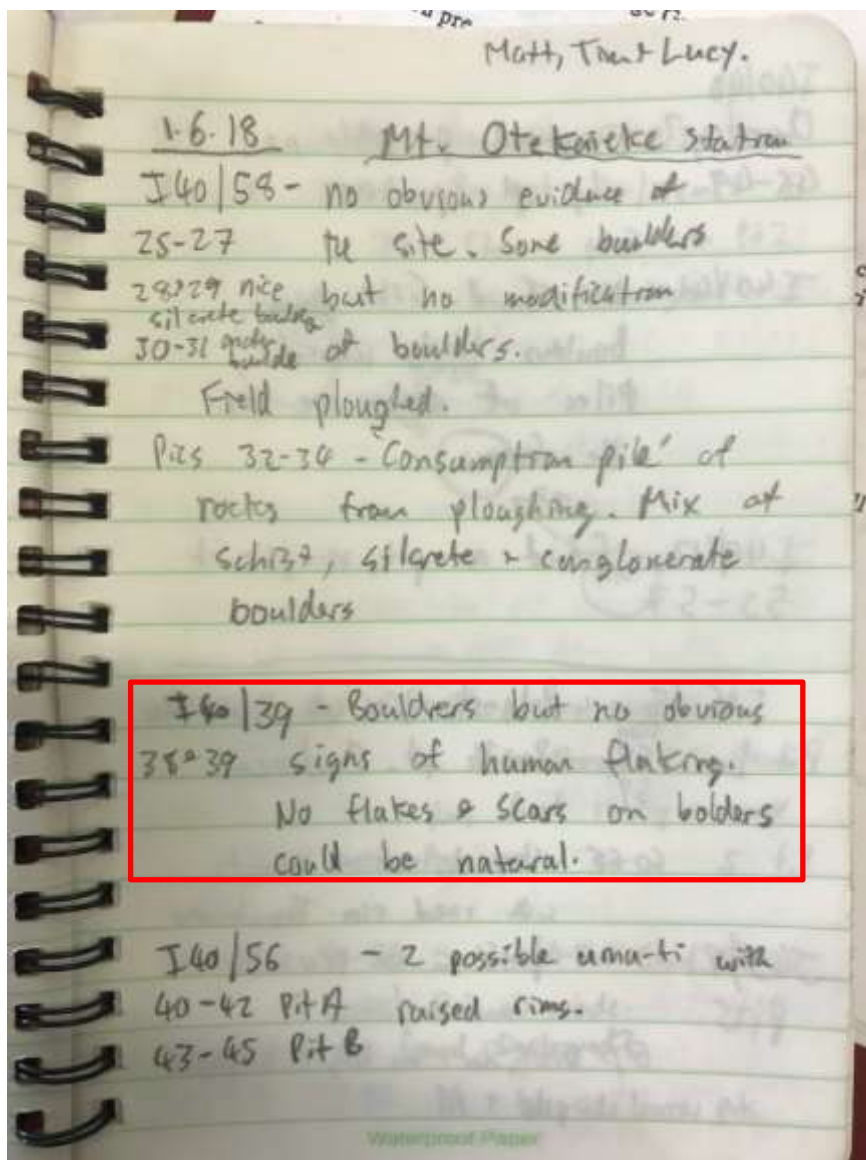 Matt, Tim + Lucy.
1.6.18 Mt. Otekaieke station
I40/58 - no obvious evidence of
25-27 the site. Some boulders
28+29 nice but no modification
silcrete
30-31 of boulders.
Field ploughed.
Pics 32-34 - 'Consumption pile' of
rocks from ploughing. Mix of
schist, silcrete + conglomerate
boulders
I40/39 - Bouldrers but no obvious
38+39 signs of human flaking.
No flakes & scars on bolders
could be natural.
I40/56 - 2 possible umu-ti with
40-42 Pit A raised rims.
43-45 Pit B
Waterproof Paper